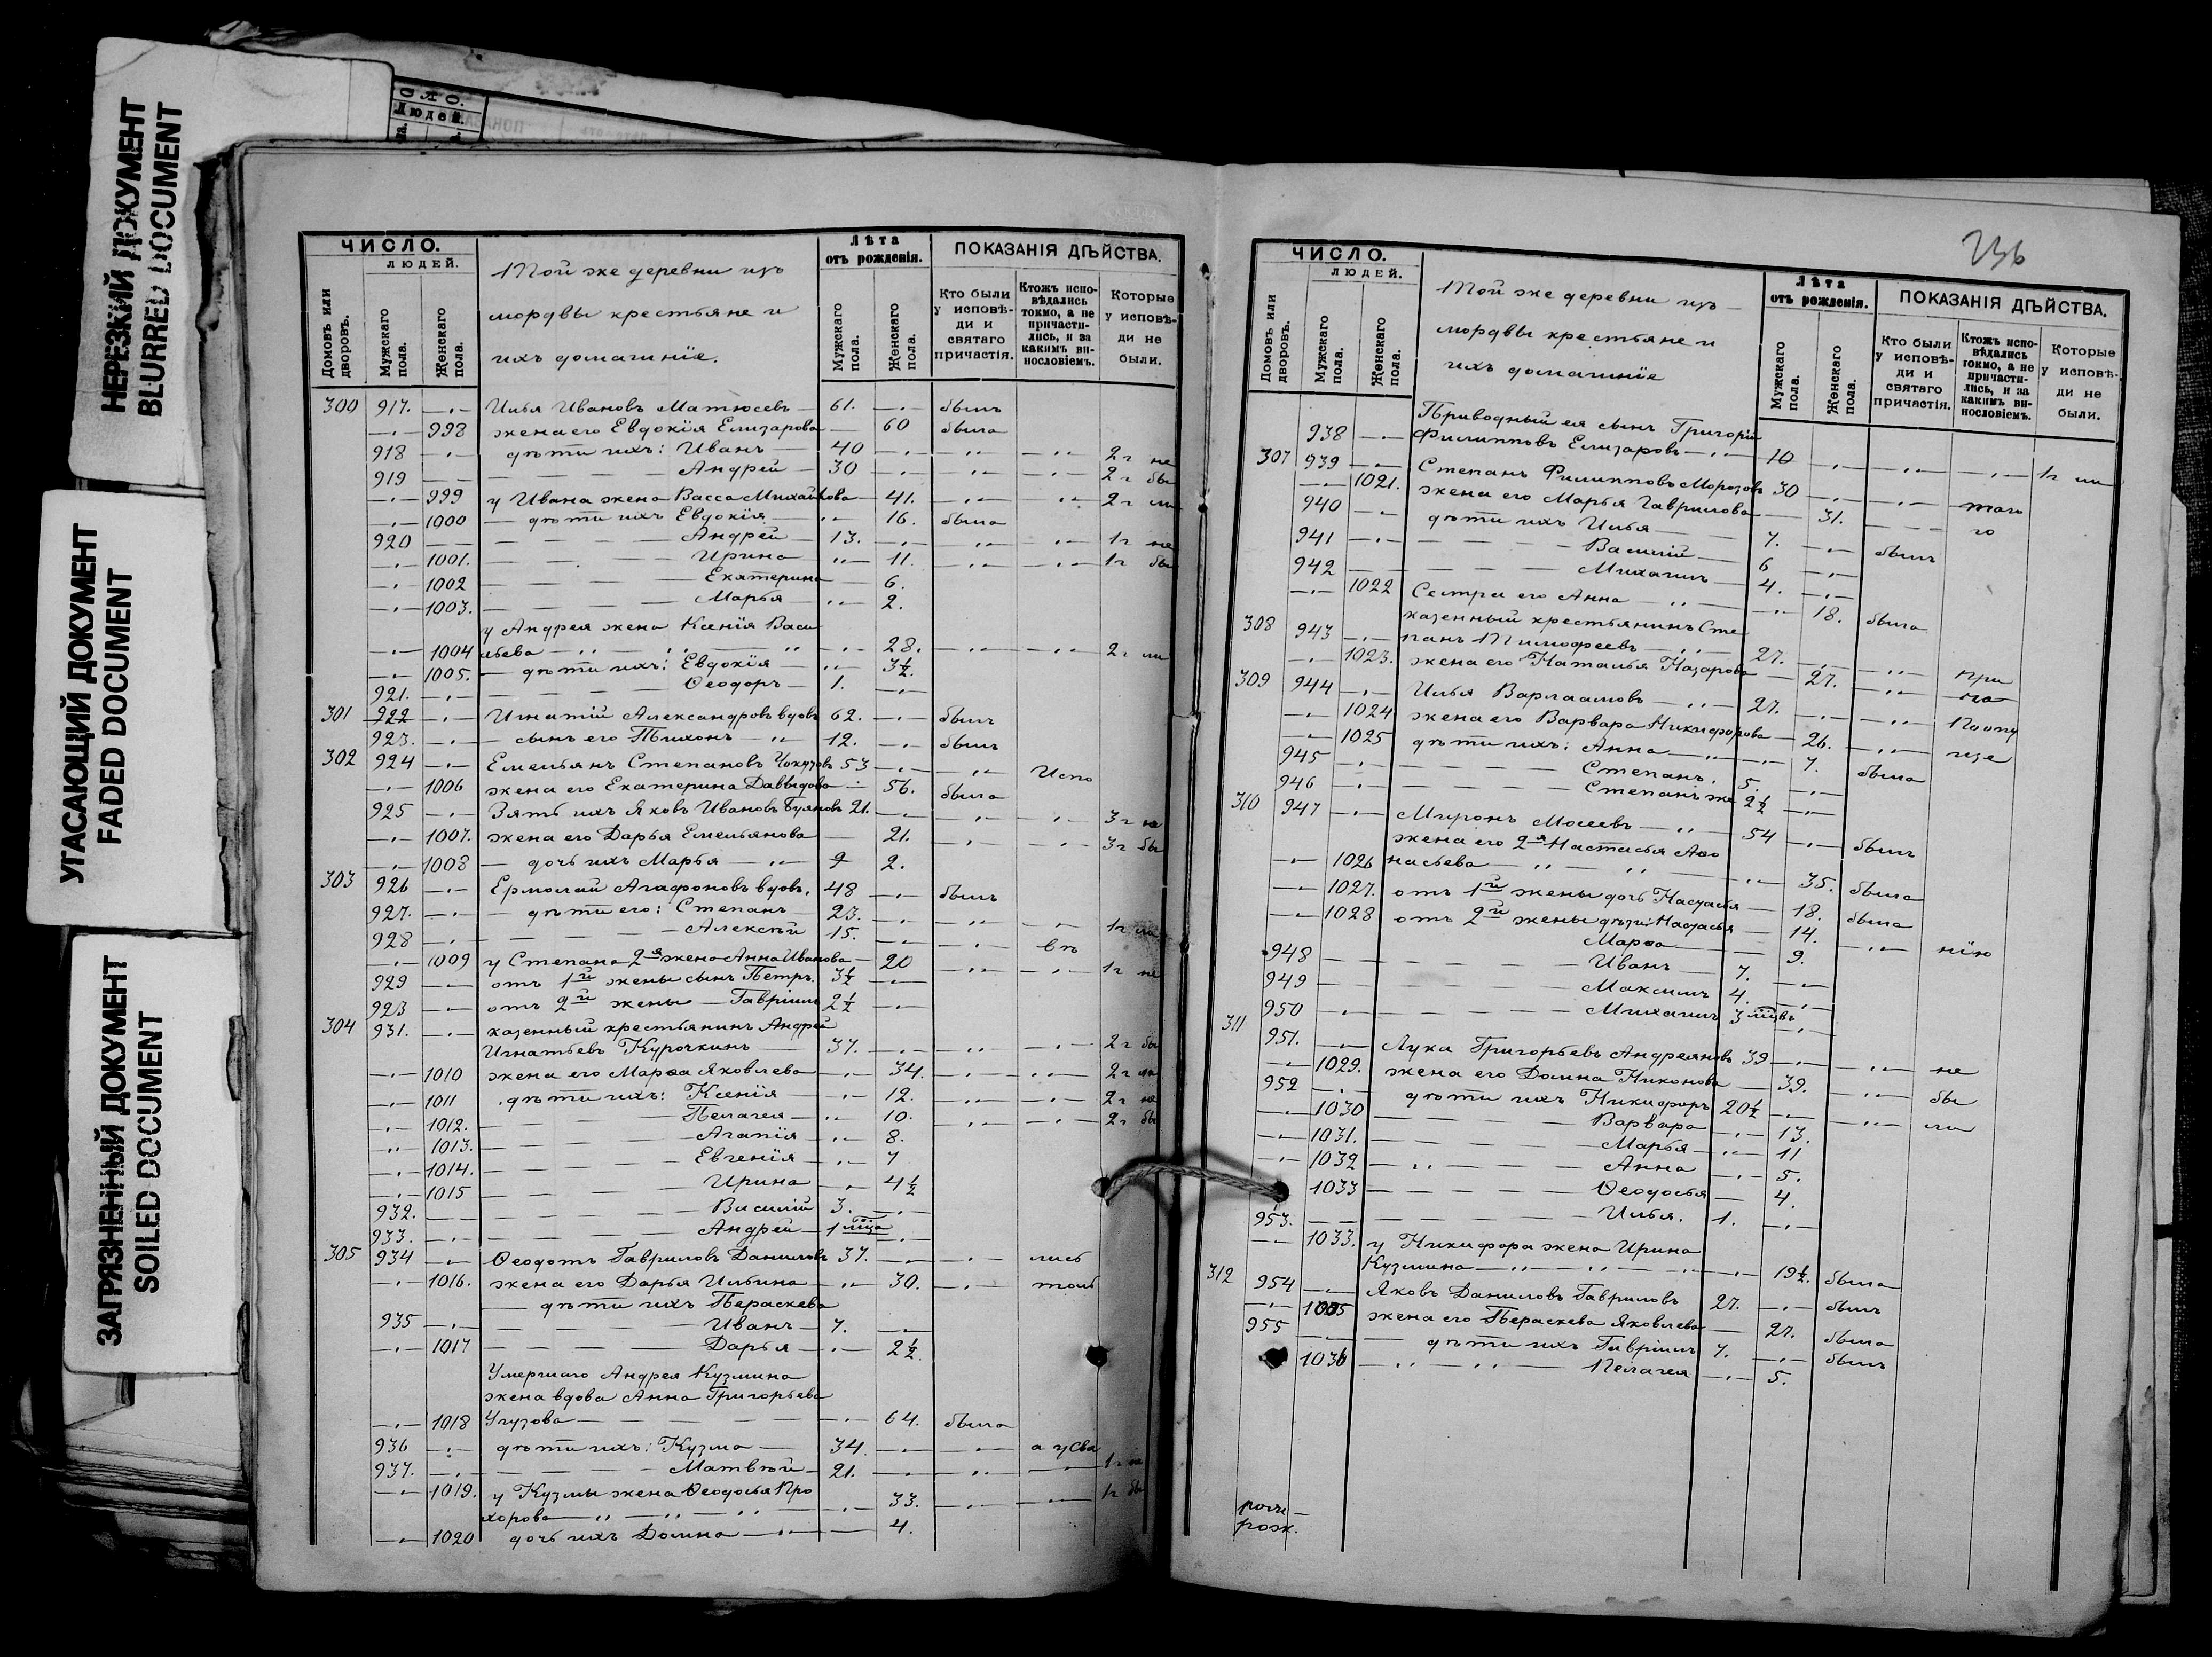 НЕРЕЗКИЙ ДОКУМЕНТ
BLURRED DOCUMENT
УГАСАЮЩИЙ ДОКУМЕНТ
FADED DOCUMENT
ЗАГРЯЗНЕННЫЙ ДОКУМЕНТ
SOILED DOCUMENT
ЧИСЛО.
ЛЮДЕЙ.
Домовъ или дворовъ.
Мужскаго пола.
Женскаго пола.
Той же деревни изъ
мордвы крестьяне и
ихъ домашніе.
Лѣта
отъ рожденія.
Мужскаго пола.
Женскаго пола.
ПОКАЗАНІЯ ДѢЙСТВА.
Кто были у исповѣди и святаго причастія.
Ктожъ исповѣдались токмо, а не причастились, и за какимъ винословіемъ.
Которые у исповѣди не были.
300 917. —„— Илья Ивановъ Матюсевъ — 61. —„— былъ
—„— 998 жена его Евдокія Елизарова — 60 была
918 —„— дѣти ихъ: Иванъ — 40 —„— „— —„— 2 г не
919 — — Андрей — 30 —„— „— —„— 2 г бы
—„— 999 у Ивана жена Васса Михайлова — 41. —„— „— 2 г ли
—„— 1000 — дѣти ихъ Евдокія — „— 16. была
920 — Андрей — 13. —„— „— „— 1 г не
—„— 1001. Ирина „— 11. —„— „— 1 г бы
—„— 1002 Екатерина — 6.
—„— 1003. Марья — „— 2.
у Андрея жена Ксенія Васи
—„— 1004 льева —„— „— —„— 28. „— „— 2 г ли
—„— 1005. — дѣти ихъ: Евдокія — „— 3½.
921. —„— Ѳеодоръ — 1. —„—
301 922 —„— Игнатій Александровъ вдовъ 62. —„— былъ
923. —„— — сынъ его Тихонъ — „— 12. —„— былъ
302 924 —„— Емельянъ Степановъ 53 —„— „— Испо
—„— 1006 жена его Екатерина Давыдова — 56. была
925 —„— Зять ихъ Яковъ Ивановъ Буяновъ 21. —„— „— „— 3 г не
—„— 1007. жена его Дарья Емельянова — 21. —„— „— 3 г бы
—„— 1008 — дочь ихъ Марья — „— 2.
303 926 —„— Ермолай Агафоновъ вдов. 48 —„— былъ
927. —„— — дѣти его: Степанъ — 23. —„— „— „— 1 г ли
928 —„— Алексѣй 15. —„— „— вѣ
—„— 1009 у Степана 2я жена Анна Иванова — 20 —„— „— 1 г не
929 —„— отъ 1й жены сынъ Петръ. 3½ —„—
923 —„— отъ 2й жены — Гавріилъ 2½ —„—
304 931. —„— казенный крестьянинъ Андрей
Игнатьевъ Курочкинъ — 37. —„— „— „— 2 г бы
—„— 1010 жена его Марѳа Яковлева — „— 34. —„— „— 2 г ли
—„— 1011 дѣти ихъ: Ксенія — „— 12. —„— „— 2 г не
—„— 1012. Пелагея — „— 10. —„— „— 2 г бы
—„— 1013. Агапія — „— 8.
—„— 1014. Евгенія — „— 7
—„— 1015 Ирина — „— 4½
932. —„— Василій 3. —„—
933. —„— Андрей — 1 мца —„—
305 934 —„— Ѳеодотъ Гавриловъ Даниловъ 37. —„— „— лись
—„— 1016. жена его Дарья Ильина — „— 30. —„— толь
— дѣти ихъ Пераскева
935 —„— Иванъ — 7. —„—
—„— 1017 Дарья — „— 2½.
Умершаго Андрея Кузмина
жена вдова Анна Григорьева
—„— 1018 Угузова — — —„— 64. была
936 —„— дѣти ихъ: Кузма — 34. —„— „—
937. —„— Матвѣй — 21. —„— „— —
—„— 1019. у Кузмы жена Ѳеодосья Про
хорова —„— „— „— —„— 33. —„— „— 1 г бы
—„— 1020 дочь ихъ Домна —„— — 4.
236
ЧИСЛО.
ЛЮДЕЙ.
Домовъ или дворовъ.
Мужскаго пола.
Женскаго пола.
Той же деревни изъ
мордвы крестьяне и
ихъ домашніе
Лѣта
отъ рожденія.
Мужскаго пола.
Женскаго пола.
ПОКАЗАНІЯ ДѢЙСТВА.
Кто были у исповѣди и святаго причастія.
Ктожъ исповѣдались токмо, а не причастились, и за какимъ винословіемъ.
Которые у исповѣди не были.
Приводный ея сынъ Григорій
938 —„— Филипповъ Елизаровъ —„— 10 —„— „— —„— 1 г ли
307 939 —„— Степанъ Филипповъ Морозовъ 30 —„— „— толь
—„— 1021. жена его Марья Гаврилова — 31. — — го
940 —„— дѣти ихъ Илья — 7. —„— былъ
941 —„— Василій — 6 —„—
942 — Михаилъ — 4. —„—
—„— 1022 Сестра его Анна — „— —„— 18. была
308 казенный крестьянинъ Сте
943 —„— панъ Тимофеевъ — „— 27. —„— „— при
—„— 1023. жена его Наталья Назарова — 27. „—
309 944 —„— Илья Варлаамовъ — „— 27. —„— „—
—„— 1024 жена его Варвара Никифорова — 26. „— ще
—„— 1025 дѣти ихъ: Анна — „— 7. была
945 —„— Степанъ. 5. —„—
946 —„— Степанъ же 2½ —„—
310 947 —„— Миронъ Мосеевъ — „— 54 —„— былъ
жена его 2я Настасья Аѳо
—„— 1026 насьева — „— „— —„— 35. была
—„— 1027. отъ 1й жены дочь Настасья — 18. была
—„— 1028 отъ 2й жены дѣти: Настасья — 14. „— нію
Марѳа — 9.
948 — Иванъ — 7. —„—
949 — Максимъ 4. —„—
950 —„— Михаилъ 3 мцвъ —„—
311 951. —„— Лука Григорьевъ Андреяновъ 39 —„— „— не
—„— 1029. жена его Домна Никонова — 39. „— бы
952 —„— дѣти ихъ Никифоръ 20½ —„— „— ли
—„— 1030 Варвара — „— 13.
—„— 1031. Марья — „— 11
—„— 1032 —„— Анна —„— 5.
1033 — Ѳеодосья — 4.
953. — Илья. 1. —„—
—„— 1033. у Никифора жена Ирина
Кузмина —„— „— „— —„— 19½. была
312 954 —„— Яковъ Даниловъ Гавриловъ 27. —„— былъ
—„— 1035 жена его Пераскева Яковлева — 27. была
955 —„— — дѣти ихъ Гавріилъ 7. —„— былъ
1036 —„— „— Пелагея —„— 5.